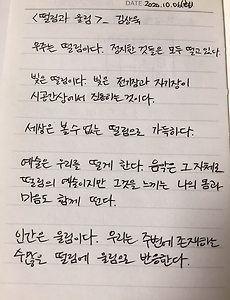 DATE 2020.10.06(화)
<떨림과 울림>_ 김상욱
우주는 떨림이다. 정지한 것들은 모두 떨고 있다.
빛은 떨림이다. 빛은 전기장과 자기장이
시공간상에서 진동하는 것이다.
세상은 볼 수 없는 떨림으로 가득하다.
예술은 우리를 떨게 한다. 음악은 그 자체로
떨림의 예술이지만 그것을 느끼는 나의 몸과
마음도 함께 떤다.
인간은 울림이다. 우리는 주변에 존재하는
수많은 떨림에 울림으로 반응한다.